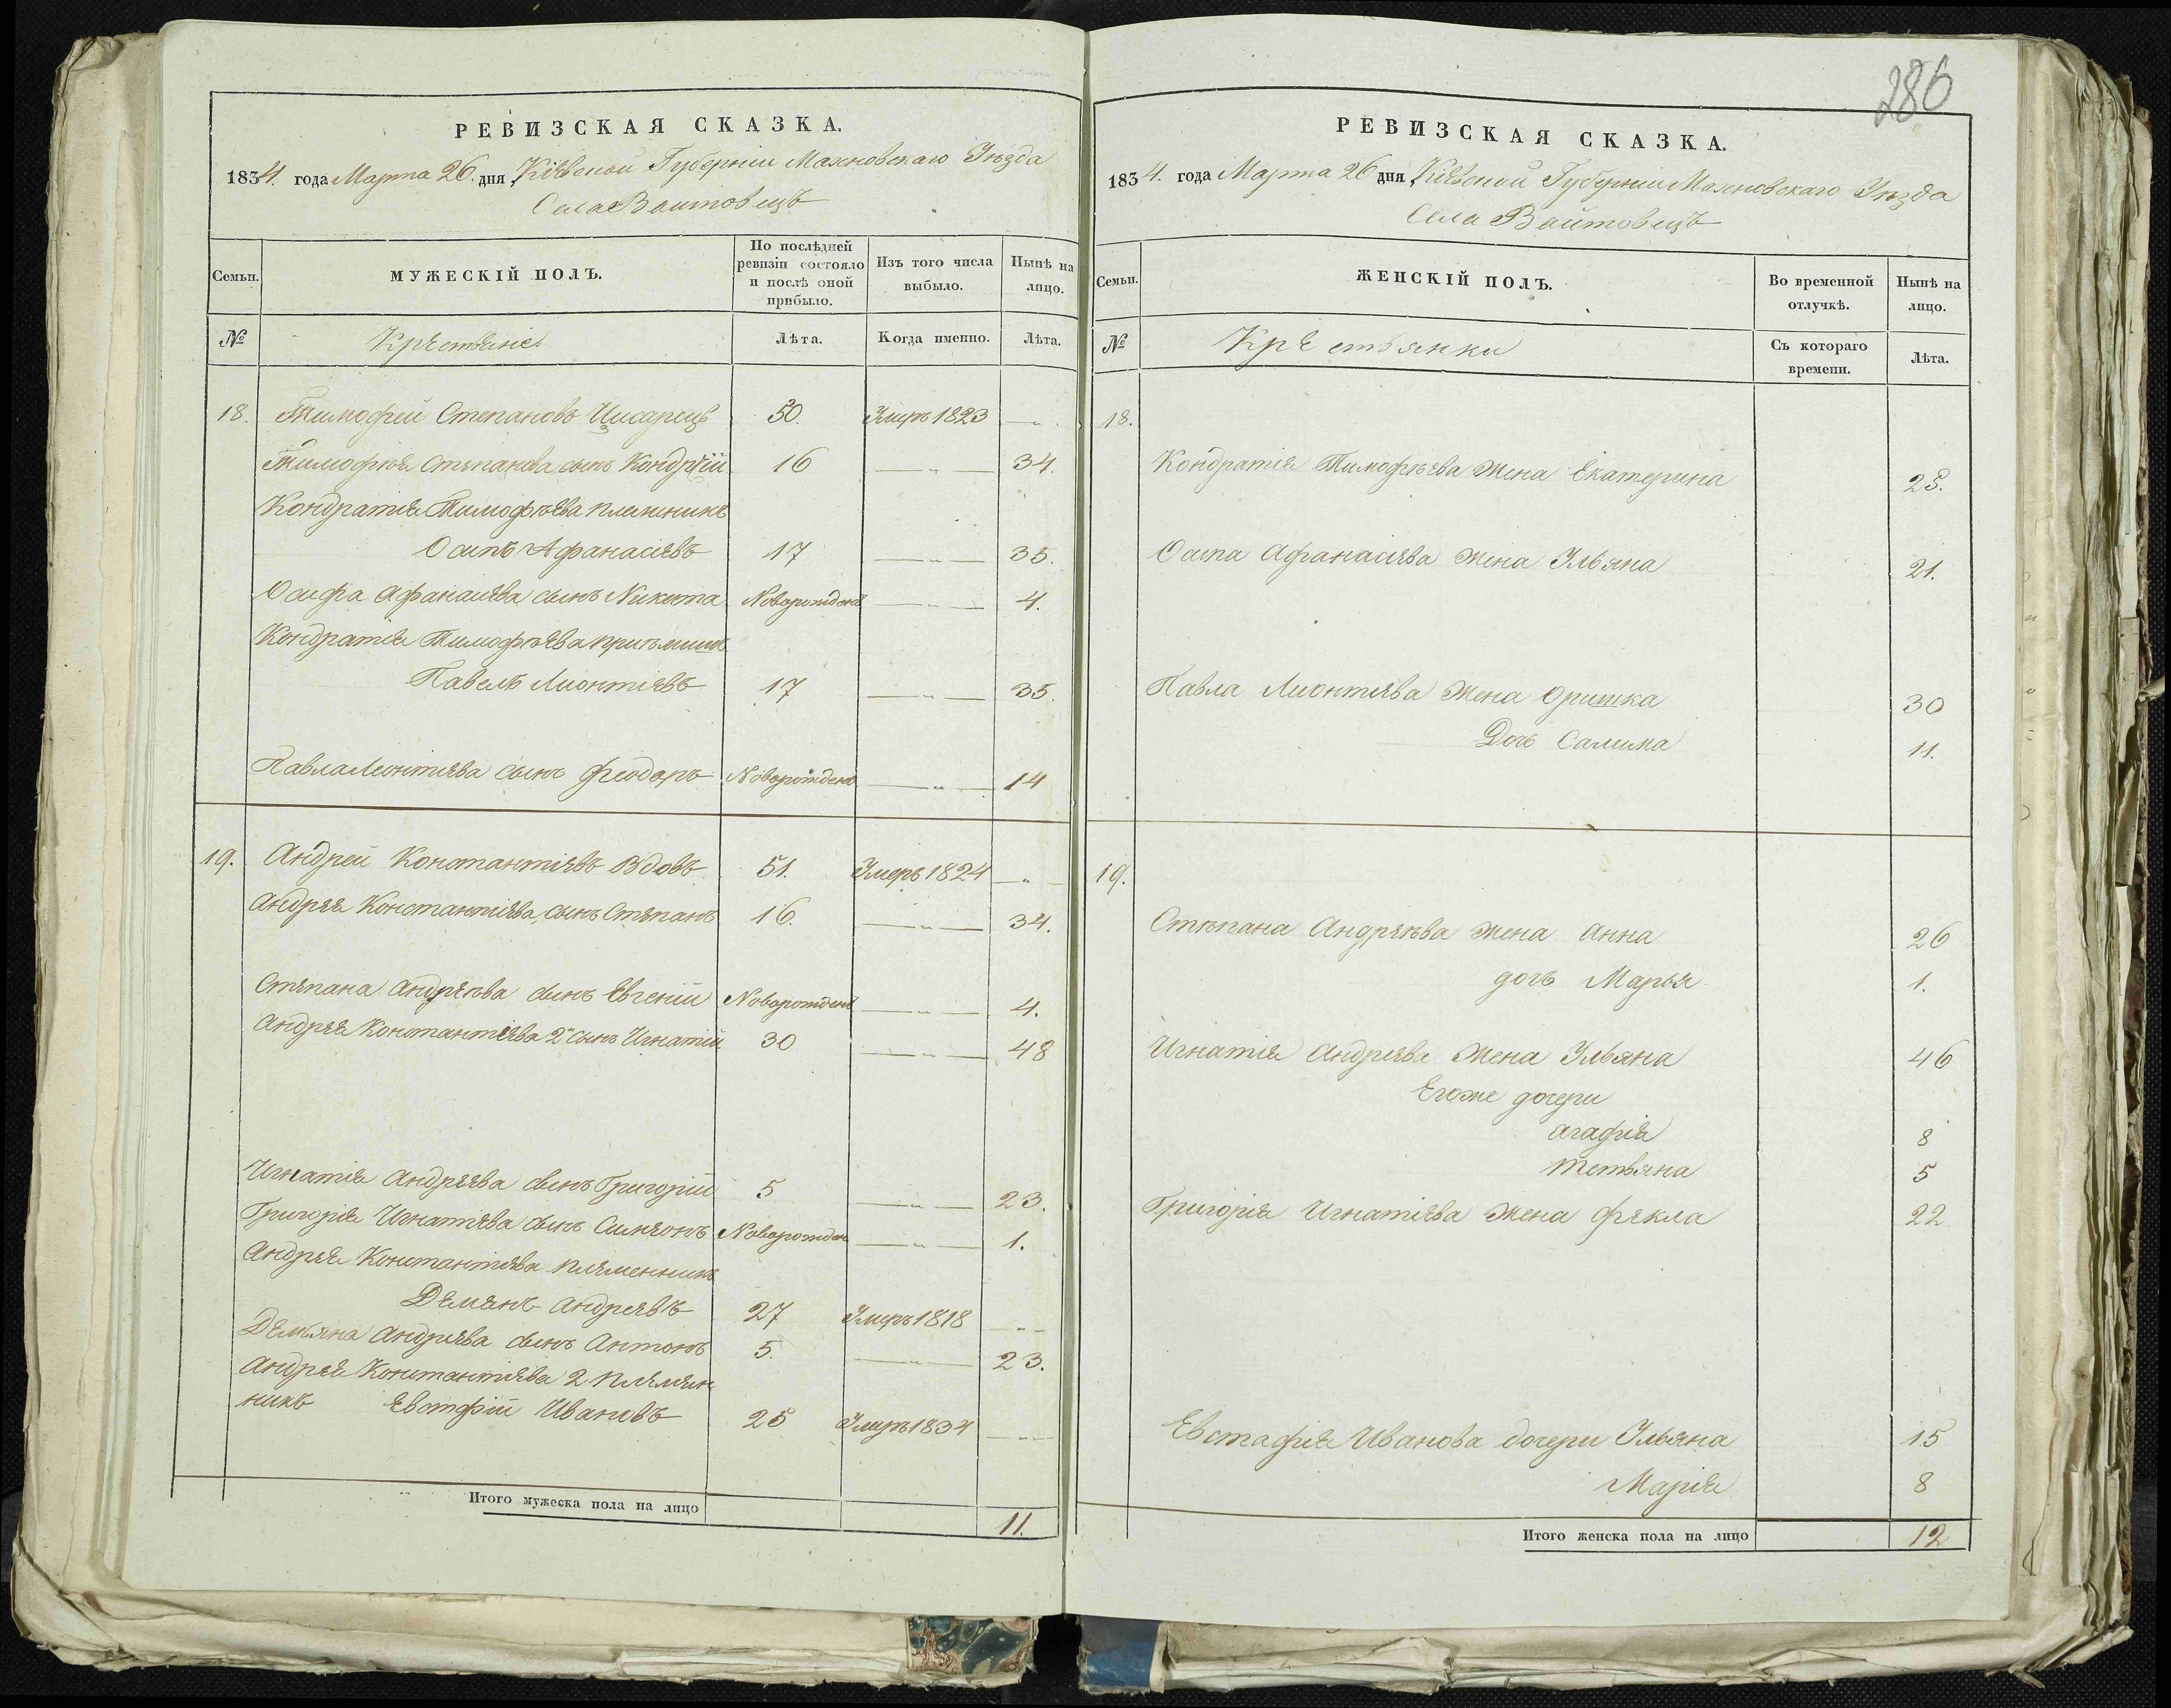 286
РЕВИЗСКАЯ СКАЗКА.
1834. года Марта 26. дня, Кіевской Губерніи Махновскаго Уѣзда
Села Войтовецъ
Семьи.
МУЖЕСКІЙ ПОЛЪ.
По послѣдней ревизіи состояло и послѣ оной прибыло.
Изъ того числа выбыло.
Нынѣ на лицо.
№
Крестьяне
Лѣта.
Когда именно.
Лѣта.
18. Тимофей Степановъ 50. Умеръ 1823 — „ —
Тимофея Степанова сынъ Кондрԏій 16 — „ — 34.
Кондратія Тимофѣева племникъ
Осипъ Афанасіевъ 17 — „ — 35.
Осифа Афанасіева сынъ Никита Новорожденъ — „ — 4.
Кондратія Тимофѣева пріѣмышъ
Павелъ Лионтіевъ 17 — „ — 35.
Павла Леонтіева сынъ Феодоръ Новорожденъ — „ — 14
19. Андрей Константіевъ Вдовъ 51. Умеръ 1824 — „ —
Андрея Константіева сынъ Степанъ 16. — „ — 34.
Степана Андреева сынъ Евгеній Новорожденъ — „ — 4.
Андрея Константіева 2й сынъ Игнатій 30 — „ — 48
Игнатія Андреева сынъ Григорій 5 — „ — 23.
Григорія Игнатіева сынъ Симеонъ Новорожден — „ — 1.
Андрея Константіева племенникъ
Демянъ Андреевъ 27 Умеръ 1818 — „ —
Демьяна Андреева сынъ Антонъ 5. — „ — 23.
Андрея Константіева 2 племен
никъ Евстфій Ивановъ 25 Умеръ 1834 — „ —
Итого мужеска пола на лицо 11.
РЕВИЗСКАЯ СКАЗКА.
1834. года Марта 26 дня, Кіевской Губерніи Махновскаго Уѣзда
Села Войтовецъ
Семьи.
ЖЕНСКІЙ ПОЛЪ.
Во временной отлучкѣ.
Нынѣ на лицо.
№
Крестьянки
Съ котораго времени.
Лѣта.
18.
Кондратія Тимофѣева жена Екатерина 25.
Осипа Афанасіева жена Ульяна 21.
Павла Лионтіева жена Оришка 30
Дочь Салима 11.
19.
Степана Андреева жена Анна 26
дочъ Марья 1.
Игнатія Андреева жена Ульяна 46
Егоже дочери
Агафія 8
Тетьяна 5
Григорія Игнатіева жена Фекла 22
Евстафія Иванова дочери Ульяна 15
Марія 8
Итого женска пола на лицо 12